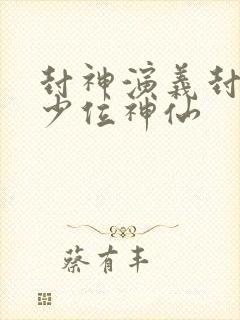 封神演义封
少位神仙
蔡有丰